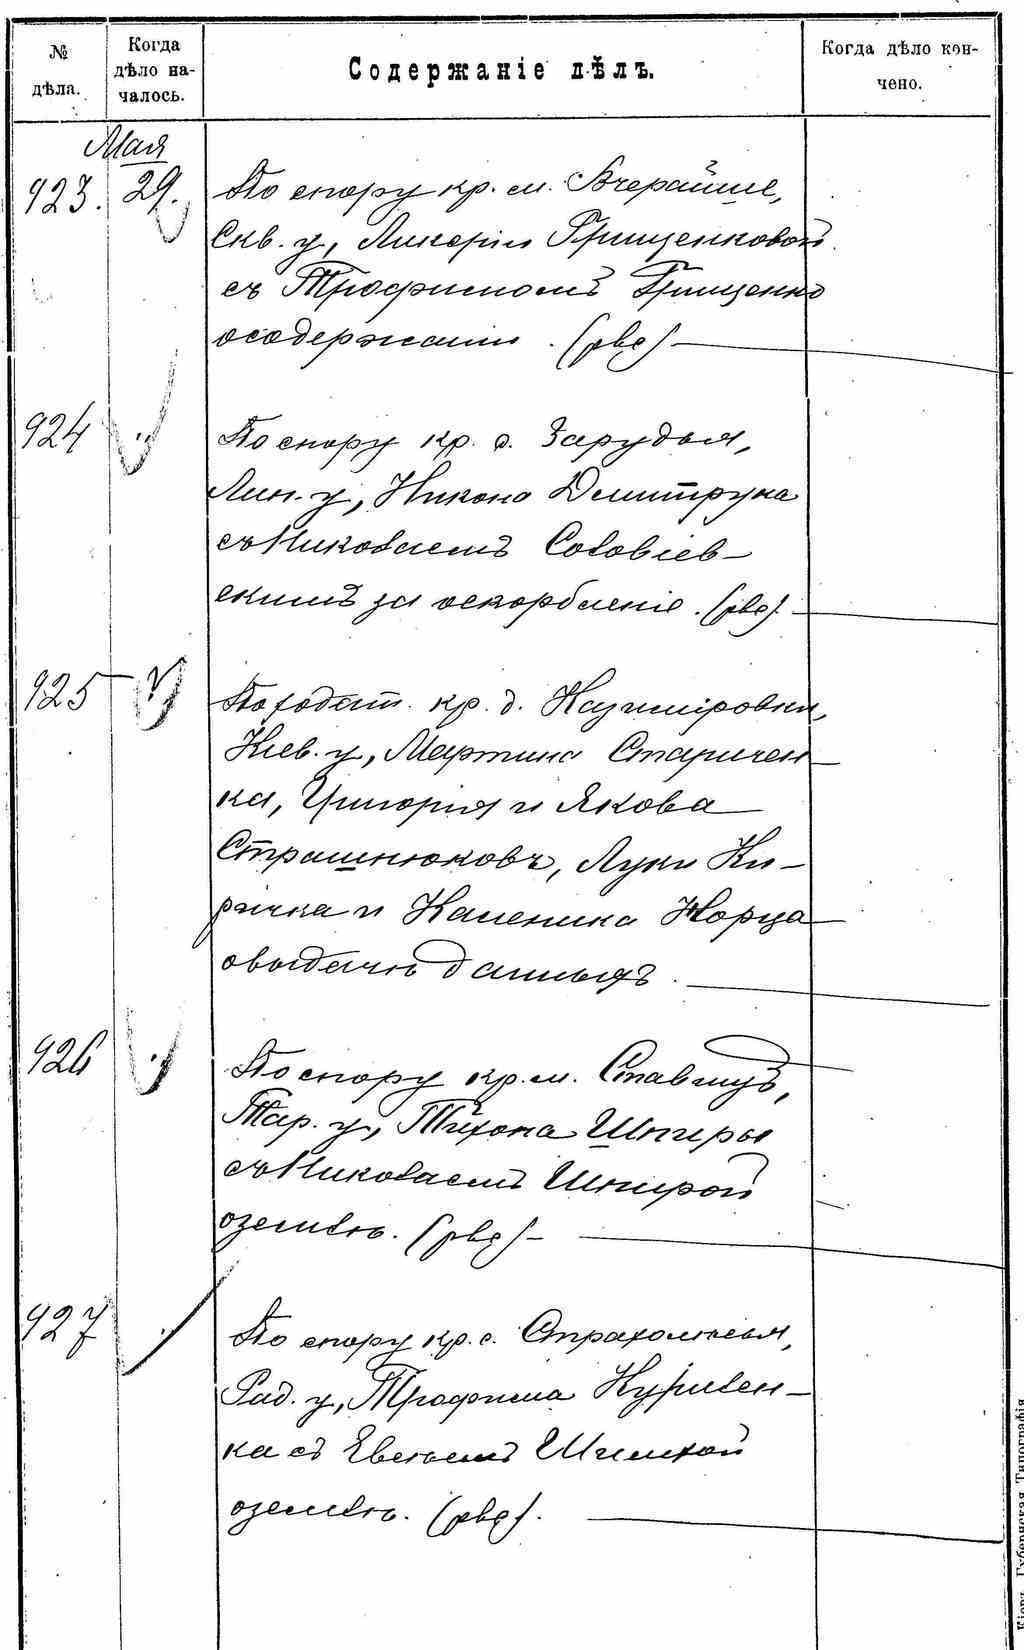 № дѣла.
Когда дѣло на-
чалось.
Содержаніе дѣлъ.
Когда дѣло кон-
чено.
Мая
923. 29. По спору кр. м. Вчерайше,
Скв. у, Ликеріи Грищенковой
съ Трофимомъ Грищенко
о содержаніи. (рвс)
924 По спору кр. д. Зарудья,
Лип. у, Никона Дмитрука
съ Николаемъ Соловіев-
скимъ за оскорбленіе. (рвс)
925 По ходат. кр. д. Казиміровки,
Кіев. у, Мартина Старичен-
ка, Григорія и Якова
Страшнюковъ, Луки Ки-
рички и Каленика Норца
о выдачѣ данныхъ.
926 По спору кр. м. Ставищъ,
Тар. у, Тихона Шпиры
съ Николаемъ Шпирой
о землѣ. (рвс)
927 По спору кр. с. Страхолѣсья,
Рад. у, Трофима Куρилен-
ка съ Евсѣемъ Шимкой
о землѣ. (рвс).
Кіевъ. Губернская Типографія